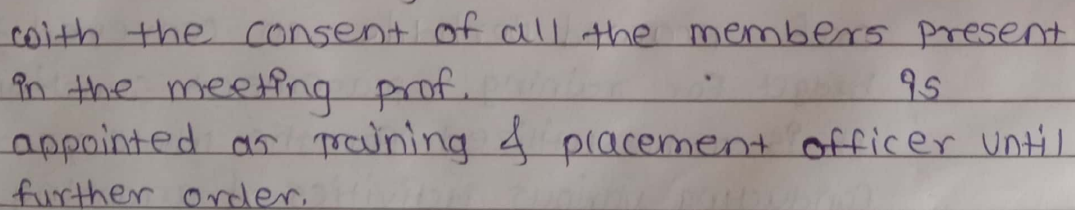 with the consent of all the members present
in the meeting prof. is
appointed as training & placement officer until
further order.